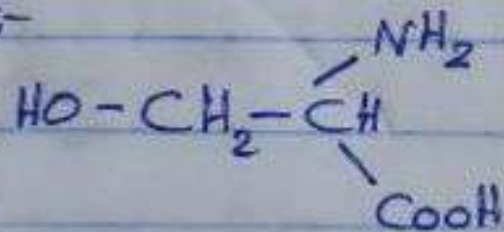 NH₂
HO-CH₂-CH
COOH